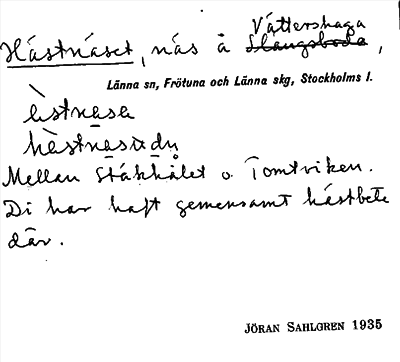 Vättershaga
Hästnäset, näs å Slangsboda,
Länna sn, Frötuna och Länna skg, Stockholms l.
hästnäsudn
Mellan Stäkhålet o. Tomtviken.
Di har haft gemensamt hästbete
där.
JÖRAN SAHLGREN 1935